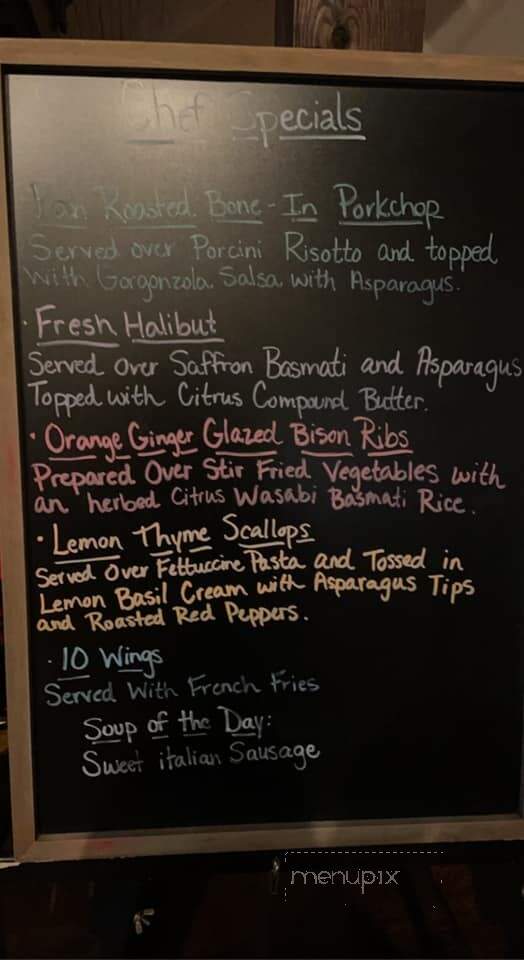 Chef Specials
Pan Roasted Bone-In Porkchop
Served over Porcini Risotto and topped
with Gorgonzola Salsa with Asparagus.
· Fresh Halibut
Served Over Saffron Basmati and Asparagus
Topped with Citrus Compound Butter.
· Orange Ginger Glazed Bison Ribs
Prepared Over Stir Fried Vegetables with
an herbed Citrus Wasabi Basmati Rice.
· Lemon Thyme Scallops
Served Over Fettuccine Pasta and Tossed in
Lemon Basil Cream with Asparagus Tips
and Roasted Red Peppers.
· 10 Wings
Served With French Fries
Soup of the Day:
Sweet italian Sausage
menupix